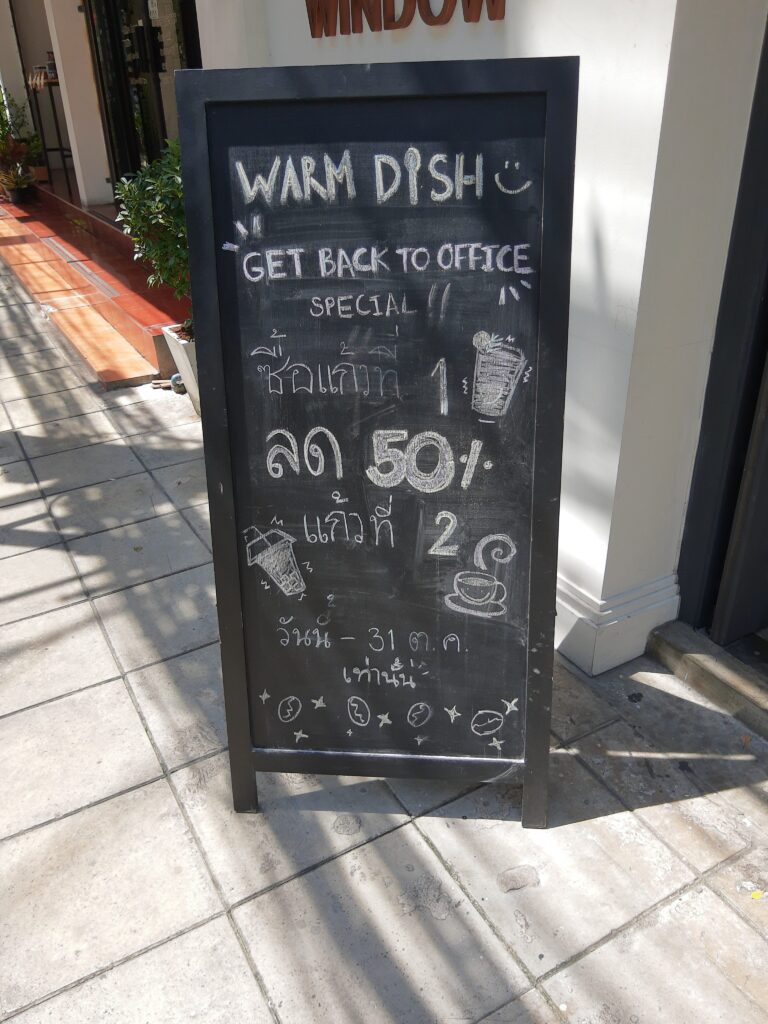 WINDOW
WARM DISH
GET BACK TO OFFICE
SPECIAL !!
ซื้อแก้วที่ 1
ลด 50%
แก้วที่ 2
วันนี้ - 31 ต.ค.
เท่านั้น